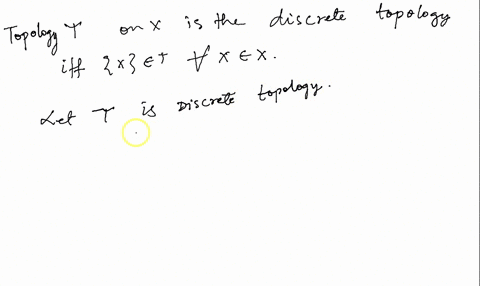 Topology T on X is the discrete topology
iff {x} ∈ T ∀ x ∈ X.
Let T is Discrete topology.